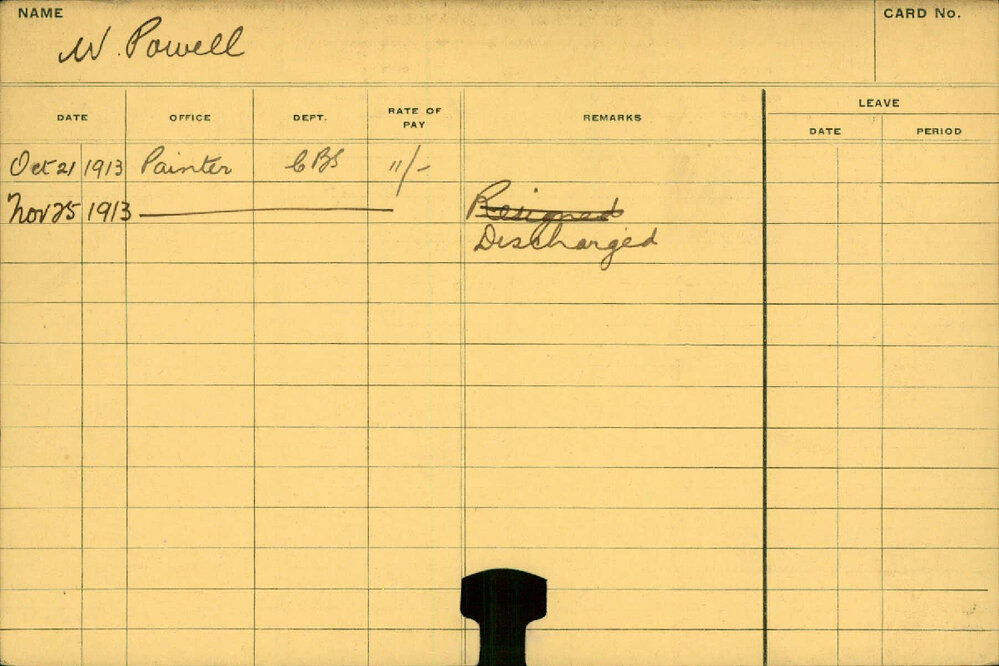 NAME CARD No.
W. Powell
LEAVE
DATE OFFICE DEPT. RATE OF PAY REMARKS DATE PERIOD
Oct 21 1913 Painter CBS 11/-
Nov 25 1913 Resigned
Discharged